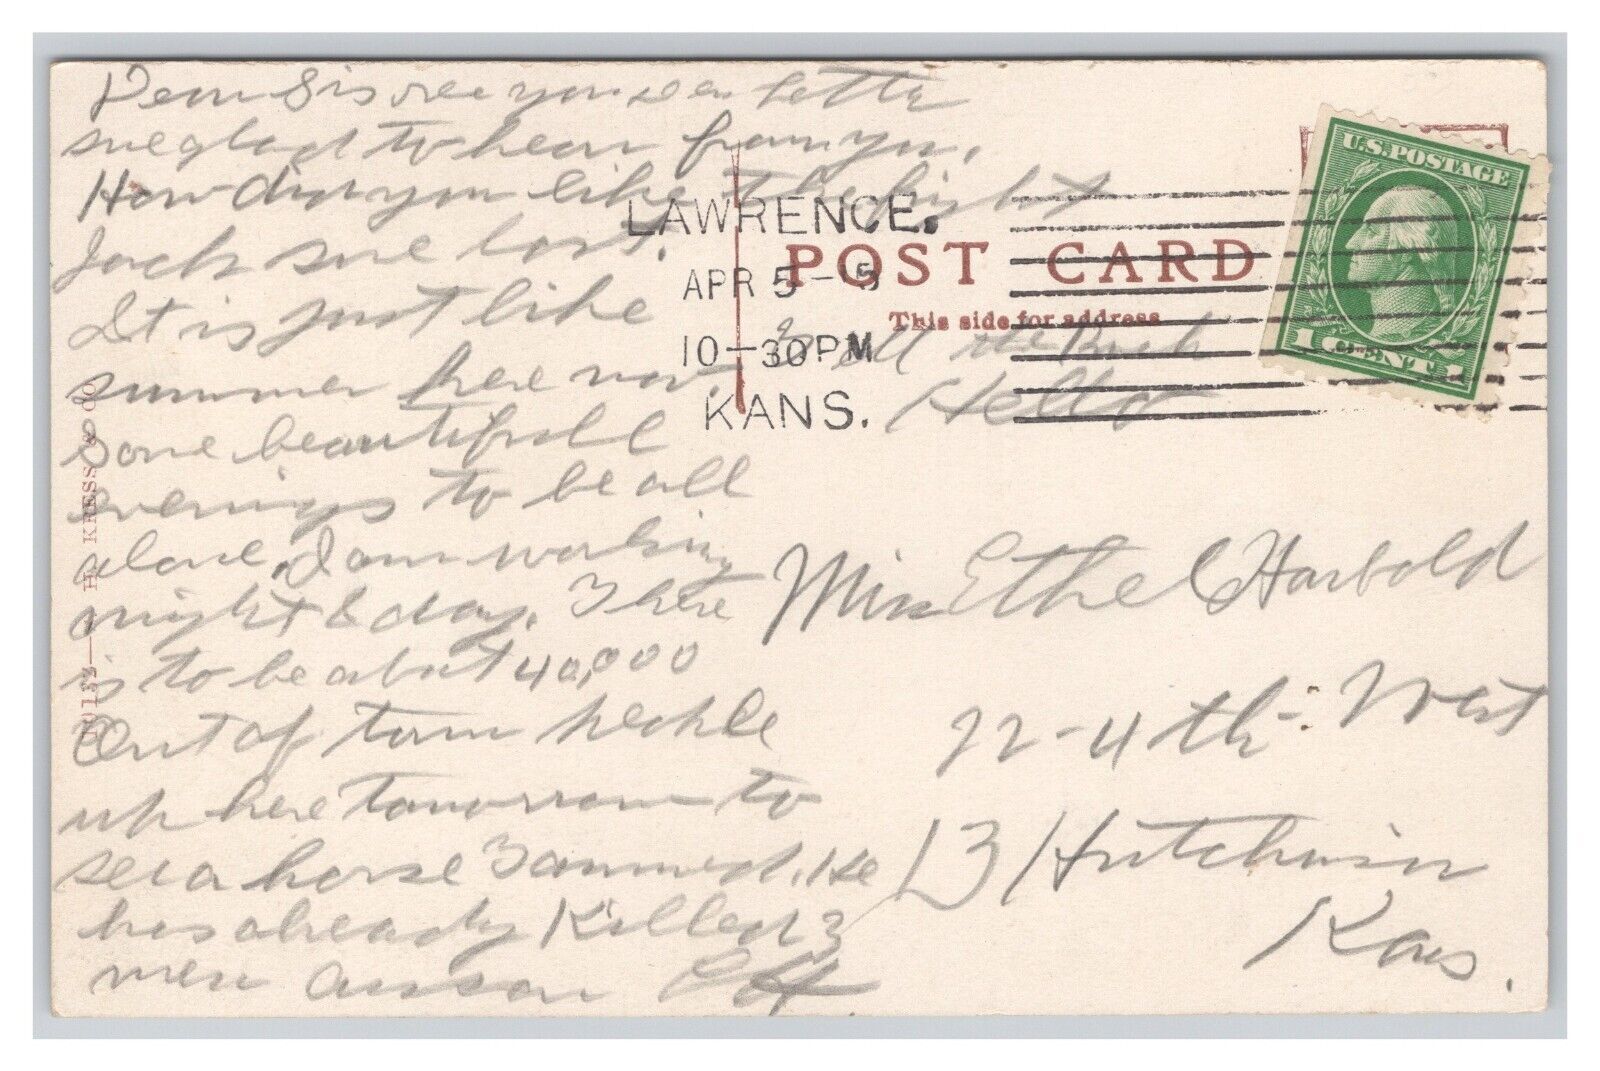 Dear Sis rec you dea letter
sure glad to hear from you.
How did you like the fight
Jack sure lost.
It is just like
summer here now,
Some beautifull
evenings to be all
alone. I am working
night & day. There
is to be about 40,000
Out of town people
up here tomorrow to
see a horse Tammed. He
has already Killed 3
men answer
LAWRENCE.
APR 5-15
10-30PM
KANS.
POST CARD
This side for address
all the Bunch
Hello
U.S.POSTAGE
1 CENT 1
Miss Ethel Harbold
22-4th-West
13 Hutchinson
Kans.
KRESS & CO